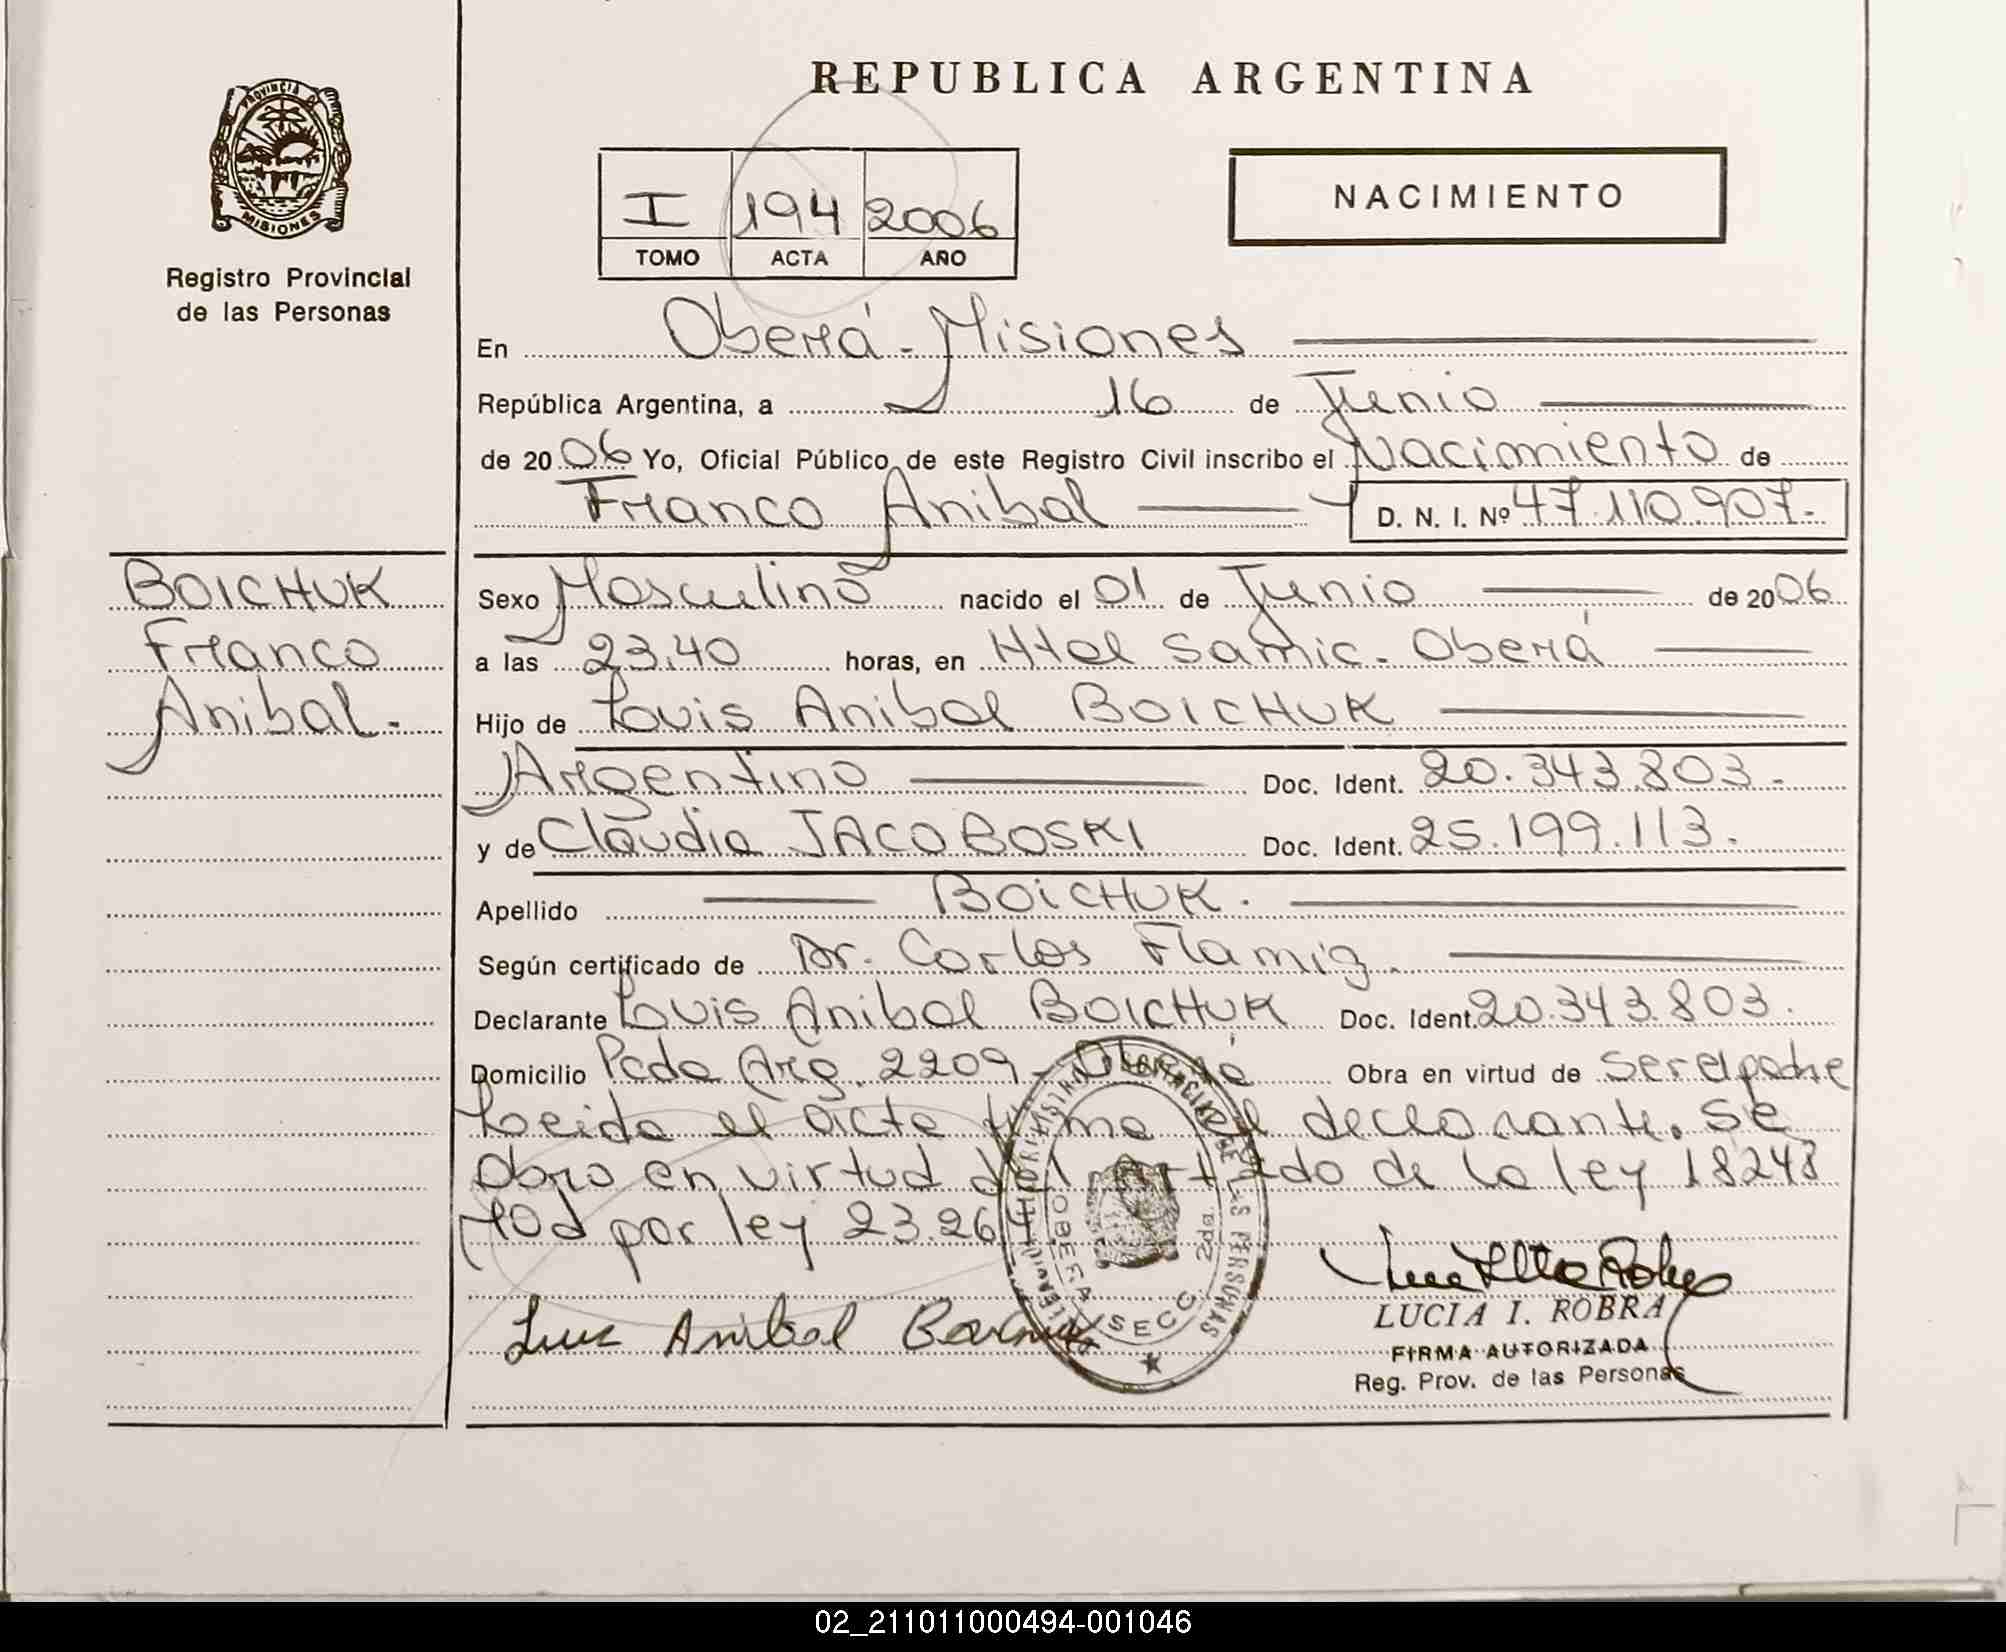 REPUBLICA ARGENTINA
PROVINCIA D
MISIONES
Registro Provincial
de las Personas
I 194 2006
TOMO ACTA AÑO
NACIMIENTO
En Oberá - Misiones
República Argentina, a 16 de Junio
de 2006 Yo, Oficial Público de este Registro Civil inscribo el Nacimiento de
Franco Anibal D. N. I. Nº 47.110.907.-
BOICHUK
Franco
Anibal.-
Sexo Masculino nacido el 01 de Junio de 2006
a las 23.40 horas, en Htal Samic. Oberá
Hijo de Luis Anibal BOICHUK
Argentino Doc. Ident. 20.343.803.-
y de Claudia JACOBOSKI Doc. Ident. 25.199.113.
Apellido BOICHUK.
Según certificado de Dr. Carlos Flamig
Declarante Luis Anibal BOICHUK Doc. Ident. 20.343.803.
Domicilio Pcda Arg. 2209 - Oberá Obra en virtud de ser el padre
Leida el acta firma el declarante. Se
Obro en virtud del art 2do de la ley 18248
Mod por ley 23.264
OBERA SECC 2da.
DE LAS PERSONAS
Luis Anibal
LUCIA I. ROBRA
FIRMA AUTORIZADA
Reg. Prov. de las Personas
02_211011000494-001046